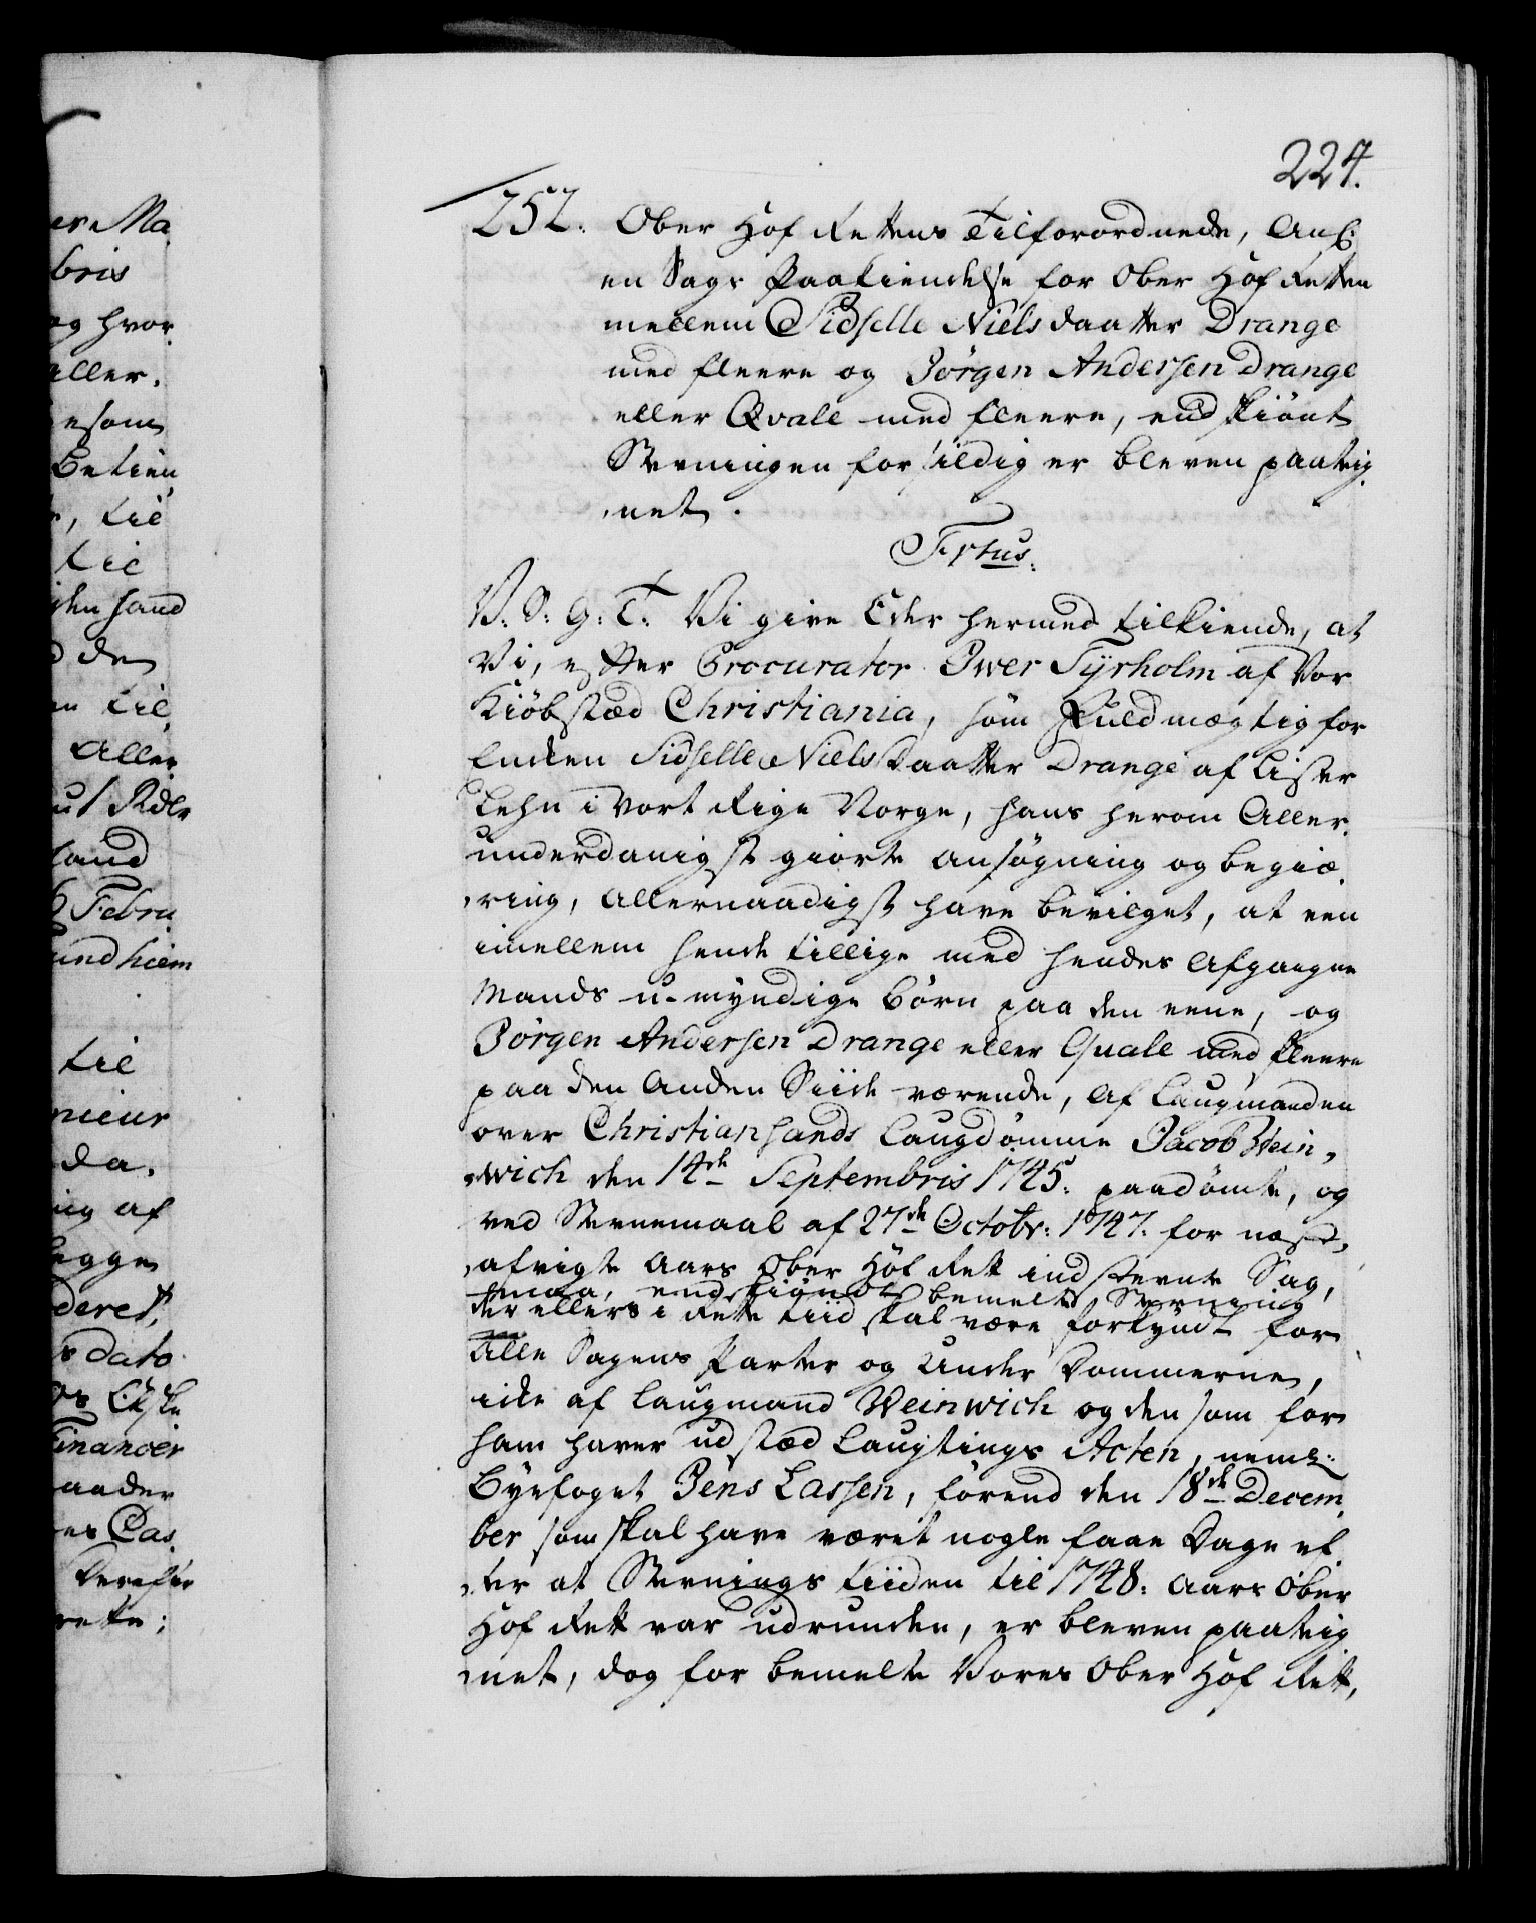 224.
252. Ober Hof Rettens Tilforordnede, Anl:
en Sags Paakiendelse for Ober Hof Retten
mellem Sidselle Nielsdaatter Drange
med fleere og Jörgen Andersen Drange
eller Qvale med fleere, endskiönt
Stevningen for sildig er bleven paateig,
,net.
Textus.
V: S: G: T: Vi give Eder hermed tilkiende, at
Vi, efter Procurator Iwer Tyrholm af Vor
Kiöbstæd Christiania, som Fuldmægtig for
Encken Sidselle Nielsdaatter Drange af Lister
Lehn i Vort Rige Norge, hans herom Aller,
underdanigst giorte ansögning og begiæ,
,ring, allernaadigst have bevilget, at een
imellem hende tillige med hendes Afgangne
Mands u-myndige Börn paa den eene, og
Jörgen Andersen Drange eller Quale med fleere
paa den Anden Siide værende, af Laugmanden
over Christiansands Laugdömme Jacob Wein,
,wich den 14de Septembris 1745: paadömte, og
ved Stevnemaal af 27de Octobr: 1747: for næst,
,afvigte Aars Ober Hof Rett indstevnte Sag,
maa, endskiönt bemelte Stevning
der ellers i Rette tiid skal være forkyndt for
alle Sagens Parter og Under Dommerne,
icke af Laugmand Weinwich og den som for
ham haver udstæd Laugtings Acten, neml:
Byefoget Jens Lassen, förend den 18de Decem
ber som skal have været nogle faae Dage ef
,ter at Stevnings tiiden til 1748: Aars Ober
Hof Rett var udrunden, er bleven paateig
,net, dog for bemelte Vores Ober Hof Rett,
er Ma
bris
og hvor
aller,
esom
Betien
, til
til
den sand
d den
en til
Aller
Rdlr
sand
Febru
und hiem
til
nieur
da,
ing af
legge
deret,
s dato
Financer
aander
es Cas
Derefter
rette;